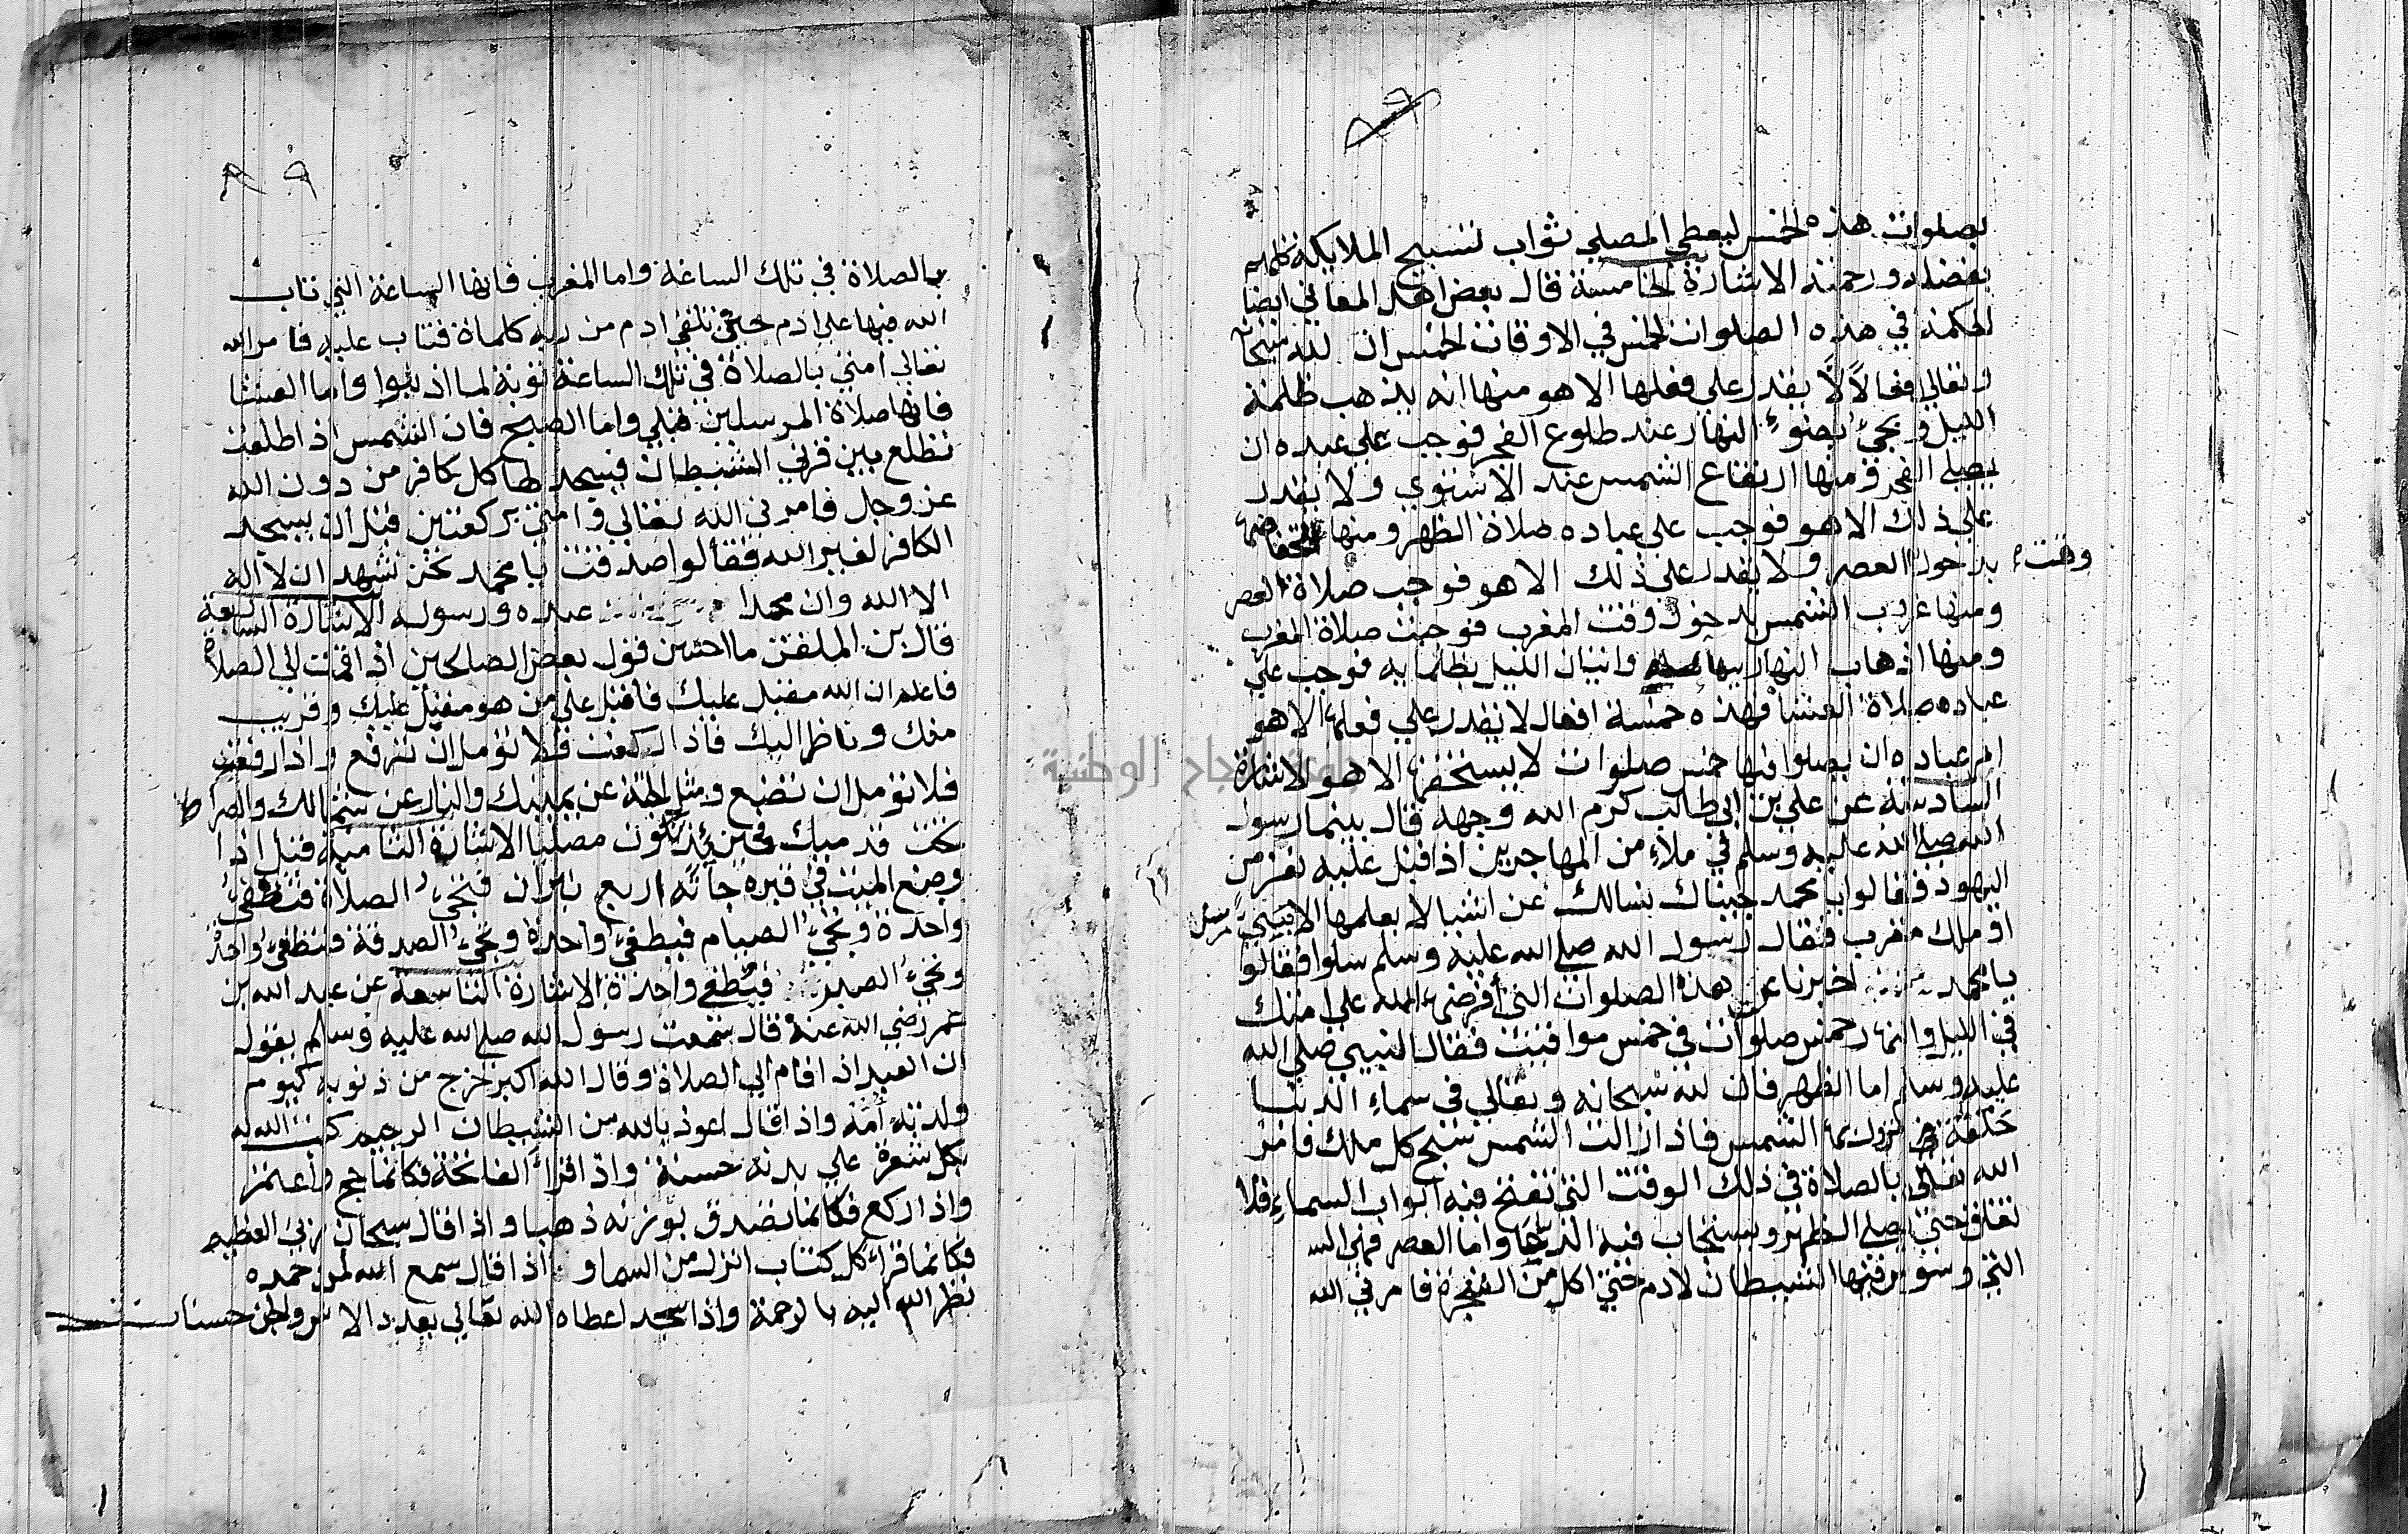 بصلوات هذه الخمس ليعطي المصلي ثواب تسبيح الملايكة كلهم
بفضله ورحمته الاشارة الخامسة قال بعض اهل المعاني ايضا
الحكمة في هذه الصلوات الخمس في الاوقات الخمس ان لله سبحانه
وتعالي فعالاً لا يقدر علي فعلها الا هو منها انه يذهب ظلمة
الليل ويجيء بضوء النهار عند طلوع الفجر فوجب علي عبده ان
يصلي الفجر ومنها ارتفاع الشمس عند الاستوي ولا يقدر
علي ذلك الا هو فوجب علي عباده صلاة الظهر ومنها انخفاضها
وقت بدخول العصر ولا يقدر علي ذلك الا هو فوجب صلاة العصر
ومنها غروب الشمس لدخول وقت المغرب فوجبت صلاة المغرب
ومنها اذهاب النهار واتيان الليل بظلمايه فوجب علي
عباده صلاة العشا فهذه خمسة افعال لا يقدر علي فعلها الا هو
امر عباده ان يصلوا فيها خمس صلوات لا يستحقها الا هو الاشارة
السادسة عن علي بن ابي طالب كرم الله وجهه قال بينما رسول
الله صلي الله عليه وسلم في ملاء من المهاجرين اذا قبل عليه نفر من
اليهود فقالوا يا محمد جيناك نسالك عن اشيا لا يعلمها الا نبي مرسل
او ملك مقرب فقال رسول الله صلي الله عليه وسلم سلوا فقالوا
يا محمد اخبرنا عن هذه الصلوات التي افترضها الله علي امتك
في الليل والنهار خمس صلوات في خمس مواقيت فقال النبي صلي الله
عليه وسلم اما الظهر فان لله سبحانه وتعالي في سماء الدنيا
حلقة تزول بها الشمس فاذا زالت الشمس سبح كل ملك فامر
الله تعالي بالصلاة في ذلك الوقت التي تفتح فيه ابواب السماء فلا
تغلق حتي يصلي الظهر ويستجاب فيه الدعا واما العصر فهي الس
التي وسوس فيها الشيطان لادم حتي اكل من الشجرة فامرني الله
٨٩
بالصلاة في تلك الساعة واما المغرب فانها الساعة التي تاب
الله فيها علي ادم حتي تلقي ادم من ربه كلماة فتاب عليه فامر الله
تعالي امتي بالصلاة في تلك الساعة توبة لما اذنبوا واما العشا
فانها صلاة المرسلين قبلي واما الصبح فان الشمس اذا طلعت
تطلع بين قرني الشيطان فيسجد لها كل كافر من دون الله
عز وجل فامرني الله تعالي وامتي بركعتين قبل ان يسجد
الكافر لغير الله فقالوا صدقت يا محمد نحن نشهد ان لا اله
الا الله وان محمدا عبده ورسوله الاشارة السابعة
قال بن الملقن ما احسن قول بعض الصالحين اذا قمت الي الصلاة
فاعلم ان الله مقبل عليك فاقبل علي من هو مقبل عليك وقريب
منك وناظر اليك فاذا ركعت فلا تؤمل ان ترفع واذا رفعت
فلا تؤمل ان تضع ومثل الجنة عن يمينك والنار عن شمالك والصراط
تحت قدميك فحينئذ تكون مصليا الاشارة الثامنة قيل اذا
وضع الميت في قبره جاته اربع نيران فتجيء الصلاة فتطفيء
واحدة ويجيء الصيام فيطفيء واحدة وتجيء الصدقة فتطفيء واحدة
ويجيء الصبر فيطفي واحدة الاشارة التاسعة عن عبد الله بن
عمر رضي الله عنه قال سمعت رسول الله صلي الله عليه وسلم يقول
ان العبد اذا قام الي الصلاة وقال الله اكبر خرج من ذنوبه كيوم
ولدته امه واذا قال اعوذ بالله من الشيطان الرجيم كتب الله له
بكل شعرة علي بدنه حسنة واذا قرا الفاتحة فكانما حج واعتمر
واذا ركع فكانما تصدق بوزنه ذهبا واذا قال سبحان ربي العظيم
فكانما قرا كل كتاب انزل من السما واذا قال سمع الله لمن حمده
نظر الله اليه بالرحمة واذا سجد اعطاه الله تعالي بعدد الانس والجن حسنات
جامعة النجاح الوطنية